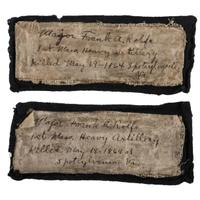 Major Frank A. Rolfe
1st Mass. Heavy Artillery
Killed May 19-1864 Spotsylvania
Va.
Major Frank A. Rolfe
1st Mass. Heavy Artillery
Killed May 19-1864 at
Spotsylvania Va.